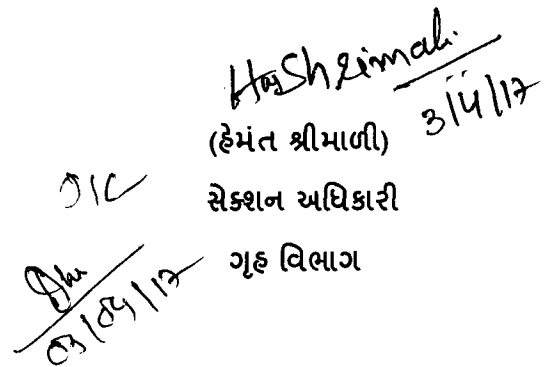 HasShrimali
3/4/17
(હેમંત શ્રીમાળી)
સેક્શન અધિકારી
ગૃહ વિભાગ
03/04/17